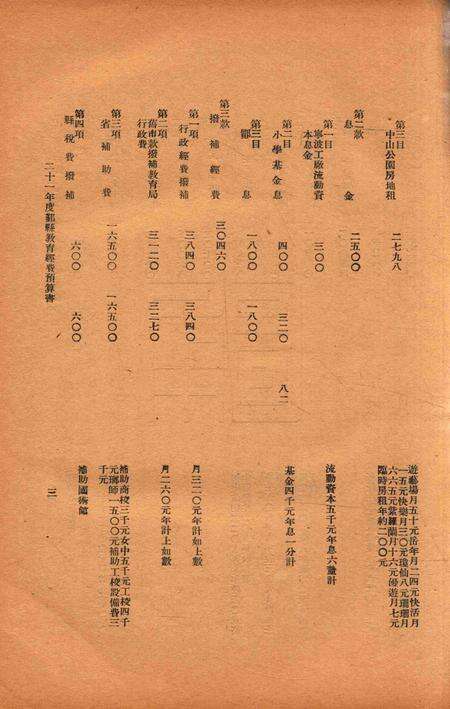 第三目
中山公園房地租
二七九八
遊藝場月五十元岳年月二四元快活月
一五元快樂月三〇元瓊仙八元珊瑚月
六六五元紫羅蘭月十六元優遊月七元
臨時房租年約二〇〇元
第二款
息金
二五〇〇
第一目
寧波工廠流動資
本息金
三〇〇
流動資本五千元年息六釐計
第二目
小學基金息
四〇〇
三二〇
八二
基金四千元年息一分計
第三目
息
一八〇〇
一八〇〇
第三款
撥補經費
三〇四六〇
第一項
行政經費撥補
三八四〇
三八四〇
月三二〇元年計如上數
第二項
舊市款撥補教育局
行政費
三一二〇
三二七〇
月二六〇元年計上如數
第三項
省補助費
一六五〇〇
一六五〇〇
補助商校三千元女中五千元工校四千
元鄉師一五〇〇元補助工校設備費三
千元
第四項
縣稅費撥補
六〇〇
六〇〇
補助國術館
二十一年度鄞縣教育經費預算書
三